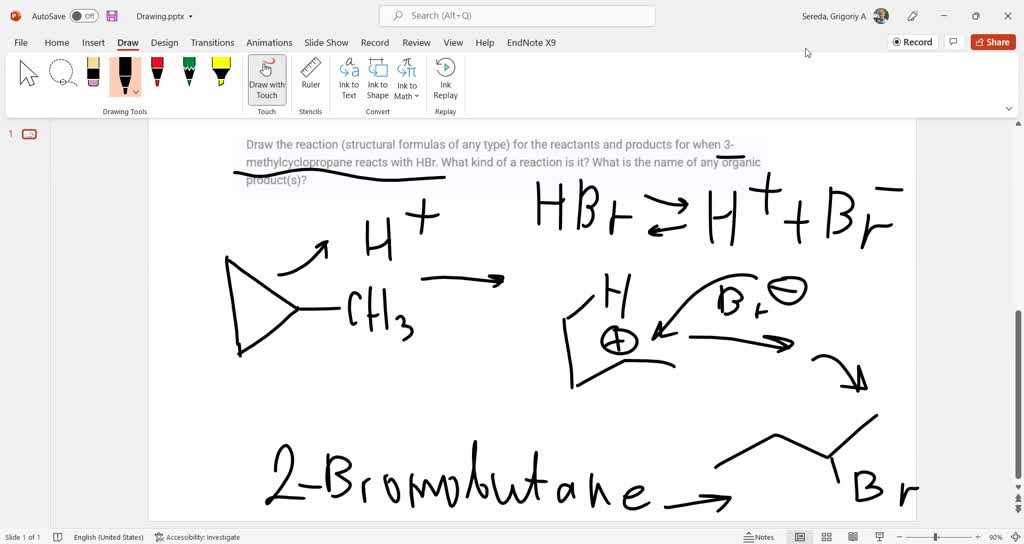 AutoSave Off Drawing.pptx Search (Alt+Q) Sereda, Grigoriy A
File Home Insert Draw Design Transitions Animations Slide Show Record Review View Help EndNote X9 Record Share
Draw with Touch Ruler Ink to Text Ink to Shape Ink to Math Ink Replay
Drawing Tools Touch Stencils Convert Replay
1
Draw the reaction (structural formulas of any type) for the reactants and products for when 3-
methylcyclopropane reacts with HBr. What kind of a reaction is it? What is the name of any organic
product(s)?
HBr ⇌ H+ + Br−
H+
CH3
H
+
Br−
Br
2-Bromobutane
Slide 1 of 1 English (United States) Accessibility: Investigate Notes 90%